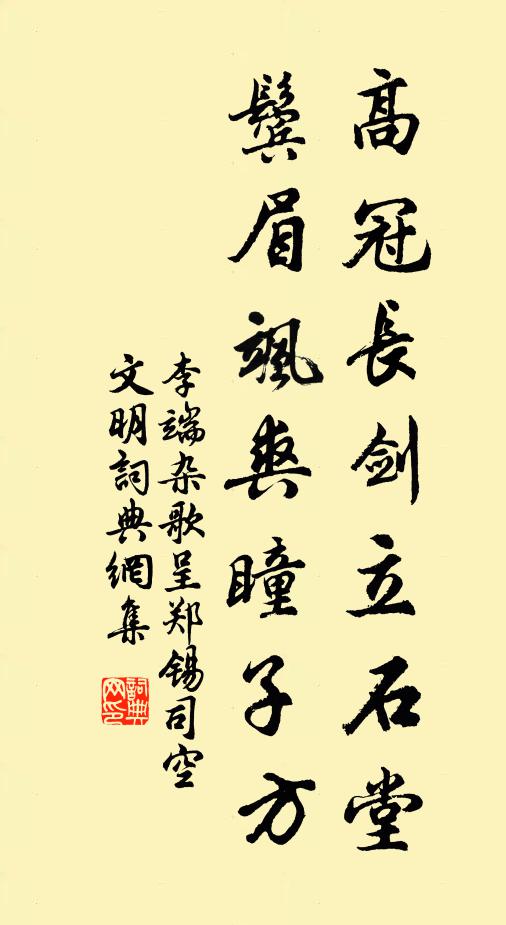 高冠長劍立石堂
鬓眉颯爽瞳子方
李端杂歌呈郑锡司空
文明詞典網集
詞典
网印